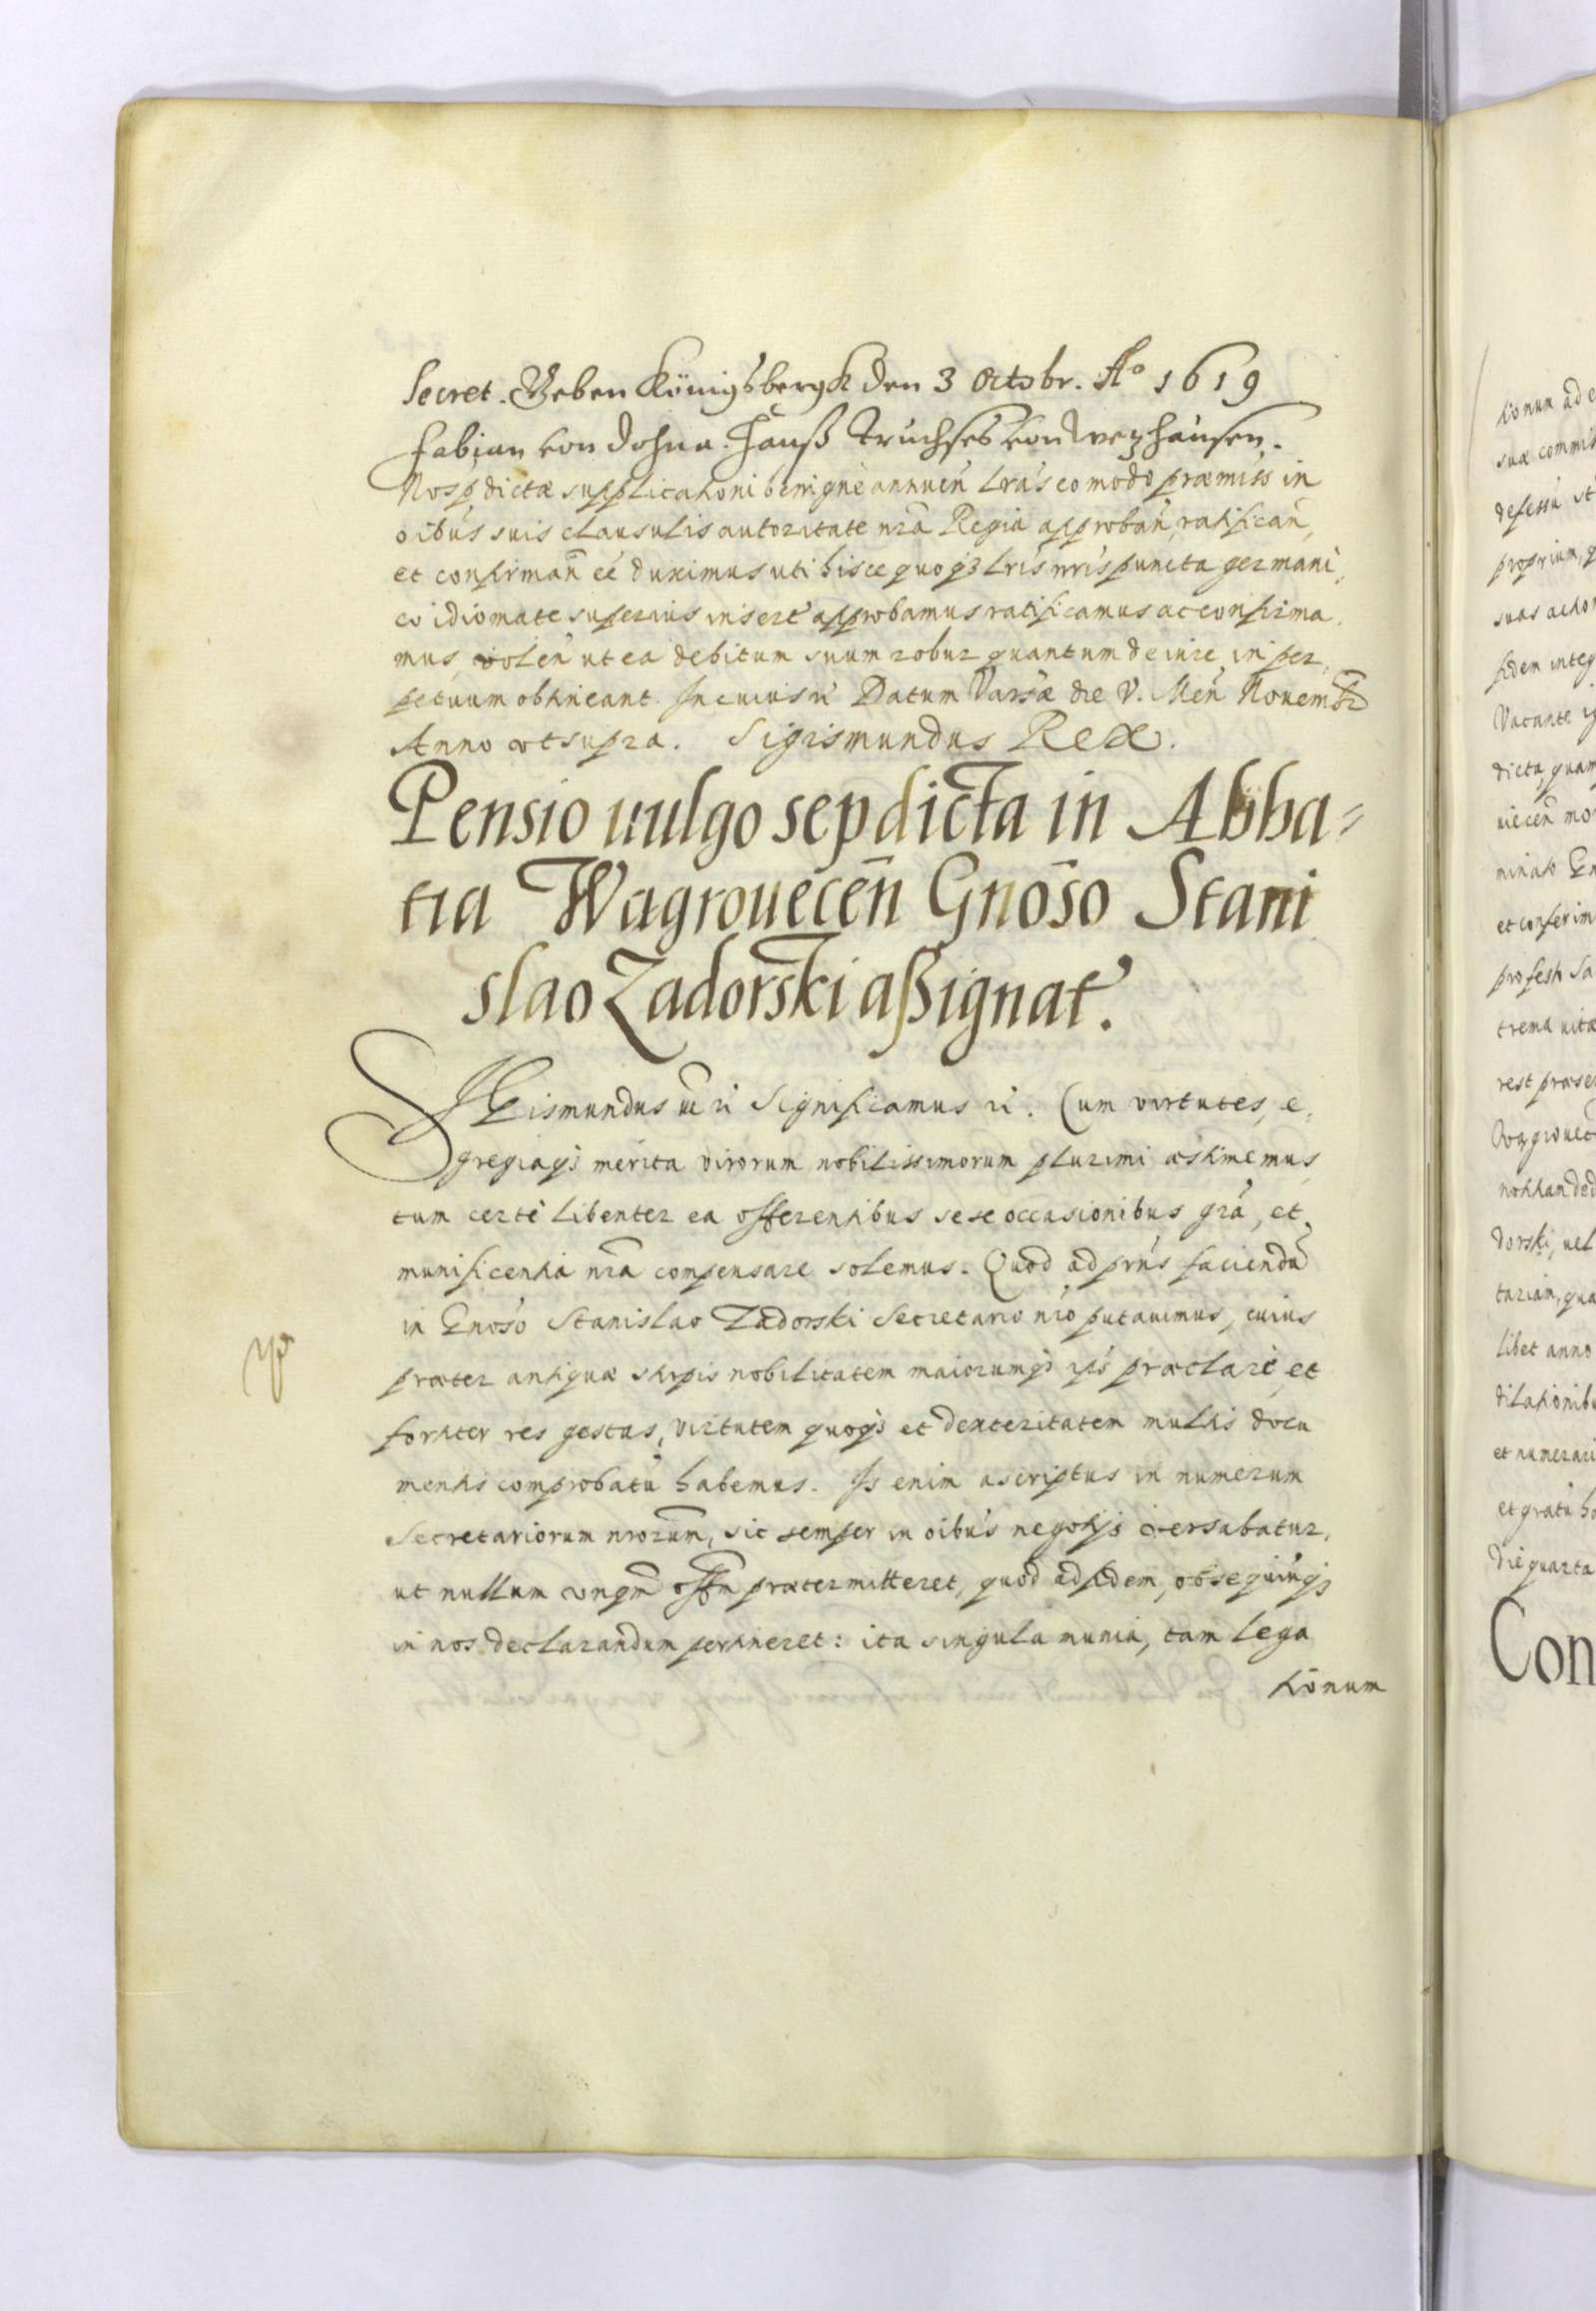 Secret. Geben Königsbergk den 3 Octobr. Aº 1619
Fabian von Dohna. Hanß Truchses von Wezhausen.
Nos p̱dictæ supplicationi benignè annuen̄ Lrãs eo modo præmiss in
oibūs suis clausulis autoritate nrã Regia approban̄, ratifican̄,
et confirman̄ eē duximus uti hisce quoqȝ Lrĩs nrĩs puncta germani,
co idiomate superius insert approbamus ratificamus ac confirma,
mus, volen̄ ut ea debitum suum robur quantum de iure in per,
petuum obtineant. In cuius rĩ Datum Varsæ die V. Men̄ Novembr̃
Anno vt supra. Sigismundus Rex.
Pensio uulgo sep dicta in Abba=
tia Wagrouecen̄ Gnōso Stani
slao Zadorski aßignat̃.
SIGismundus ɾc̃ Significamus ɾc̃. Cum virtutes, e,
gregiaqȝ merita virorum nobilissimorum plurimi æstimemus,
tum certè libenter ea offerentibus sese occasionibus grã, et
munificentia nrã compensare solemus. Quod ad prñs faciendū
in Gnōso Stanislao Zadorski Secretario nrõ putauimus, cuius
præter antiquæ stirpis nobilitatem maiorumqȝ ips̄ præclarè, et
fortiter res gestas, virtutem quoqȝ et dexteritatem multis docu
mentis comprobatā habemus. Is enim ascriptus in numerum
Secretariorum nrõrum, sic semper in oibūs negotijs versabatur,
ut nullum vnqm̄ offm̄ prætermitteret, quod ad fidem, obsequiūqȝ
in nos declarandum pertineret: ita singula munia, tam lega
tionum
tionum ad e
suæ commis
defessū st
proprium, q
suas action
fidem integ
Vacante ig
dicta, quam
uiecen̄ mo
minato Gn
et conferim
professi Sa
trema uitæ
rest præse
Wagrouec
notitiam ded
dorski, uel
tariam, qua
libet anno
dilationibu
et numerari
et gratū ha
Die quarta
Con